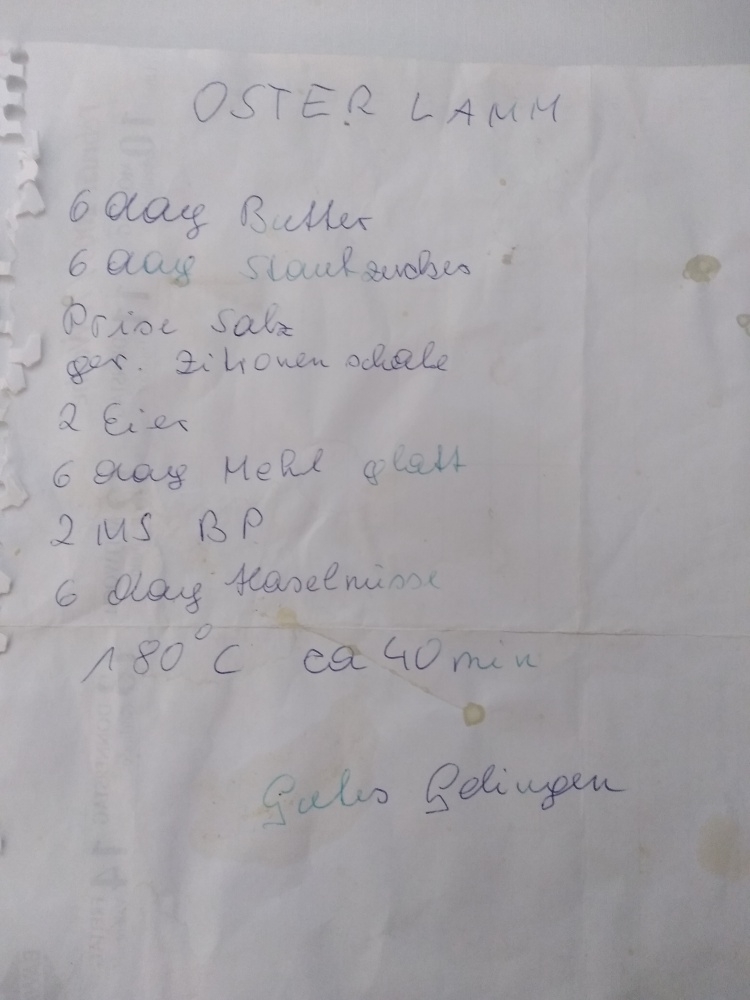 OSTER LAMM
6 dag Butter
6 dag Staubzucker
Prise Salz
ger. Zitronenschale
2 Eier
6 dag Mehl glatt
2 MS BP
6 dag Haselnüsse
180°C ca 40 min
Gutes Gelingen